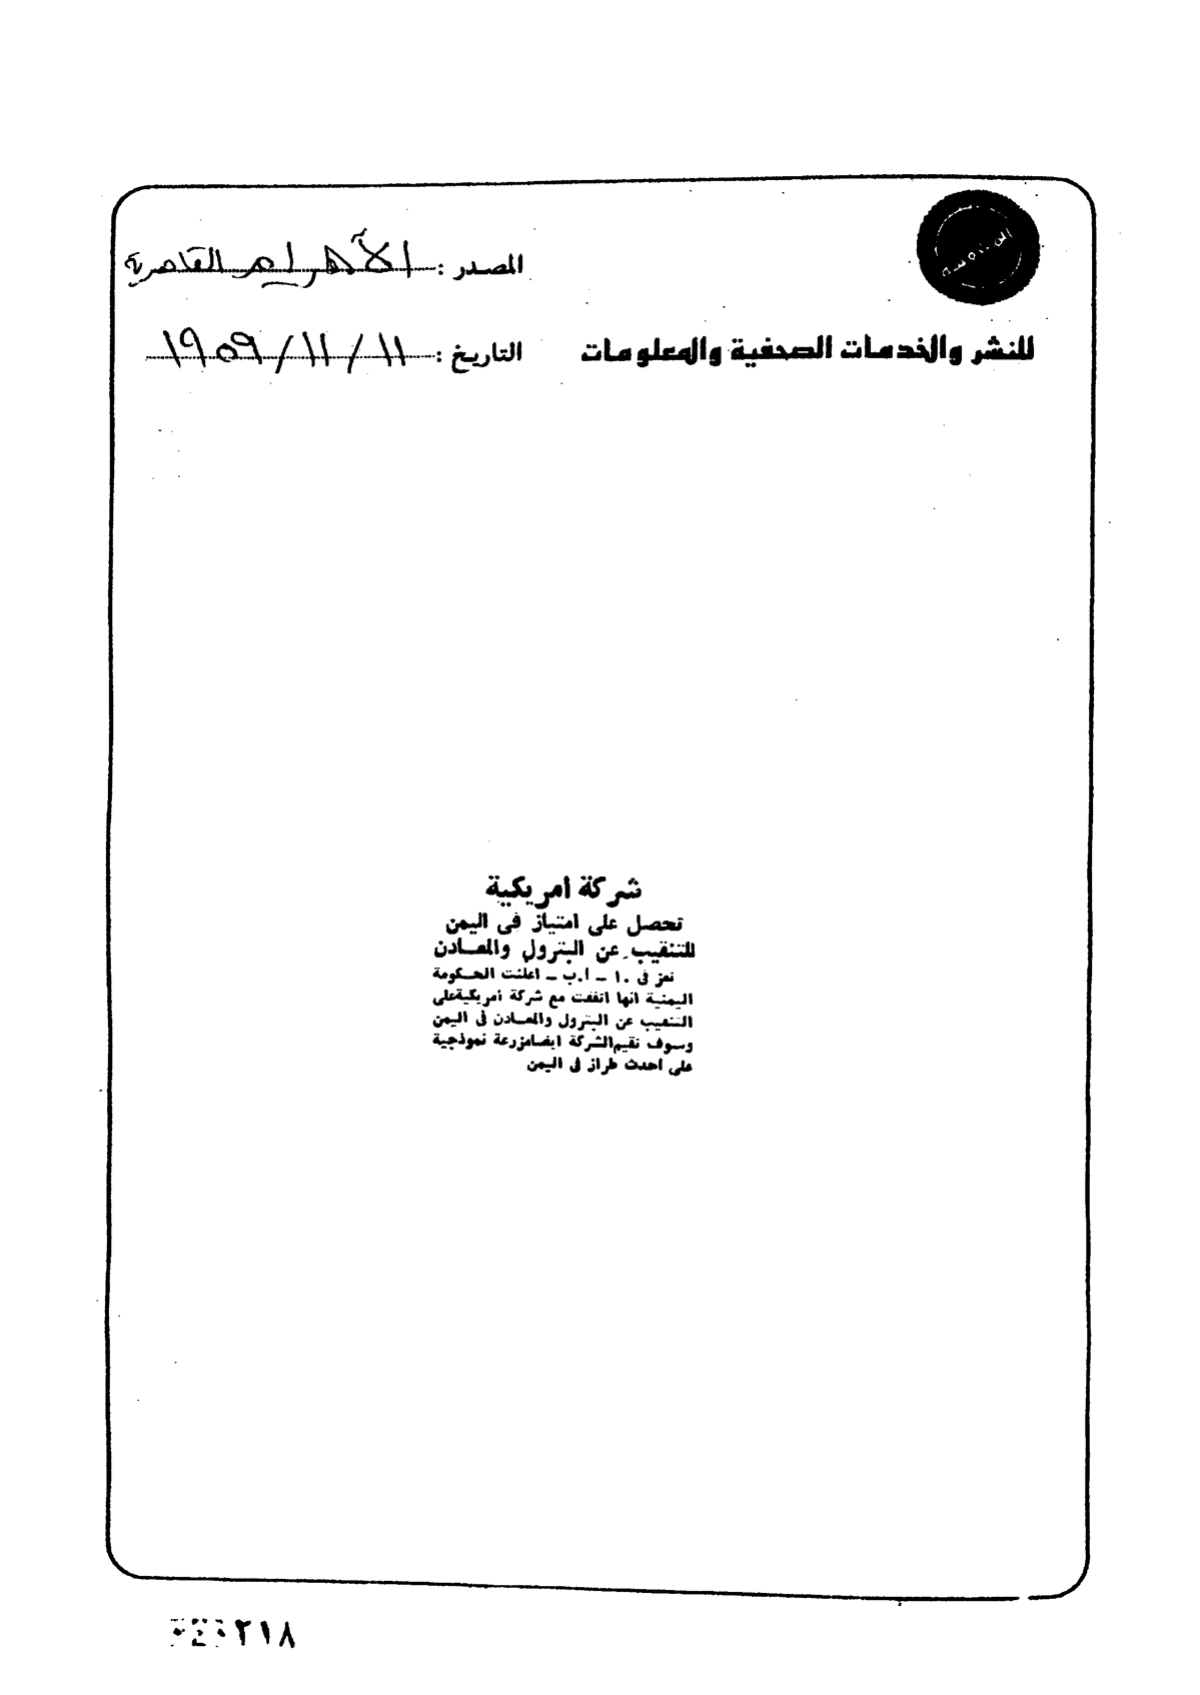 المصدر : الأهرام القاهرية
للنشر والخدمات الصحفية والمعلومات
التاريخ : ١١ / ١١ / ١٩٥٩
شركة امريكية
تحصل على امتياز فى اليمن
للتنقيب عن البترول والمعادن
تعز فى ١٠ - ا.ب - اعلنت الحكومة
اليمنية انها اتفقت مع شركة امريكية على
التنقيب عن البترول والمعادن فى اليمن
وسوف تقيم الشركة ايضا مزرعة نموذجية
على احدث طراز فى اليمن
٢١٨